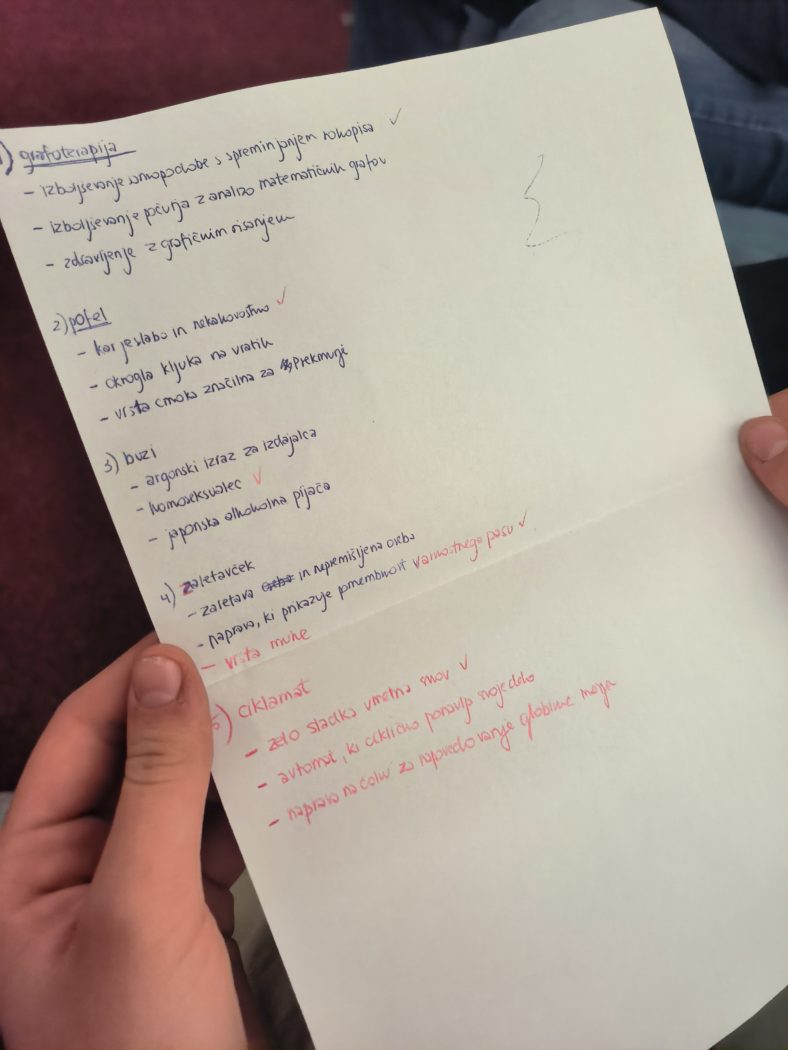 1) grafoterapija
- izboljševanje samopodobe s spreminjanjem rokopisa ✓
- izboljševanje počutja z analizo matematičnih grafov
- zdravljenje z grafičnim risanjem
2) pofel
- kar je slabo in nekakovostno ✓
- okrogla kljuka na vratih
- vrsta cmoka značilna za Prekmurje
3) buzi
- argonski izraz za izdajalca
- homoseksualec ✓
- japonska alkoholna pijača
4) zaletavček
- zaletava in nepremišljena oseba
- naprava, ki prikazuje pomembnost varnostnega pasu ✓
- vrsta muhe
5) ciklamat
- zelo sladka umetna snov ✓
- avtomat, ki ciklično ponavlja svoje delo
- naprava na čolnu za napovedovanje globine morja